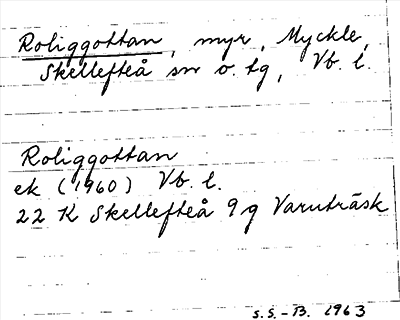 Roliggottan, myr, Myckle,
Skellefteå sn o. tg, Vb. l.
Roliggottan
ek (1960) Vb. l.
22 K Skellefteå 9g Varuträsk
S.S.-B. 1963